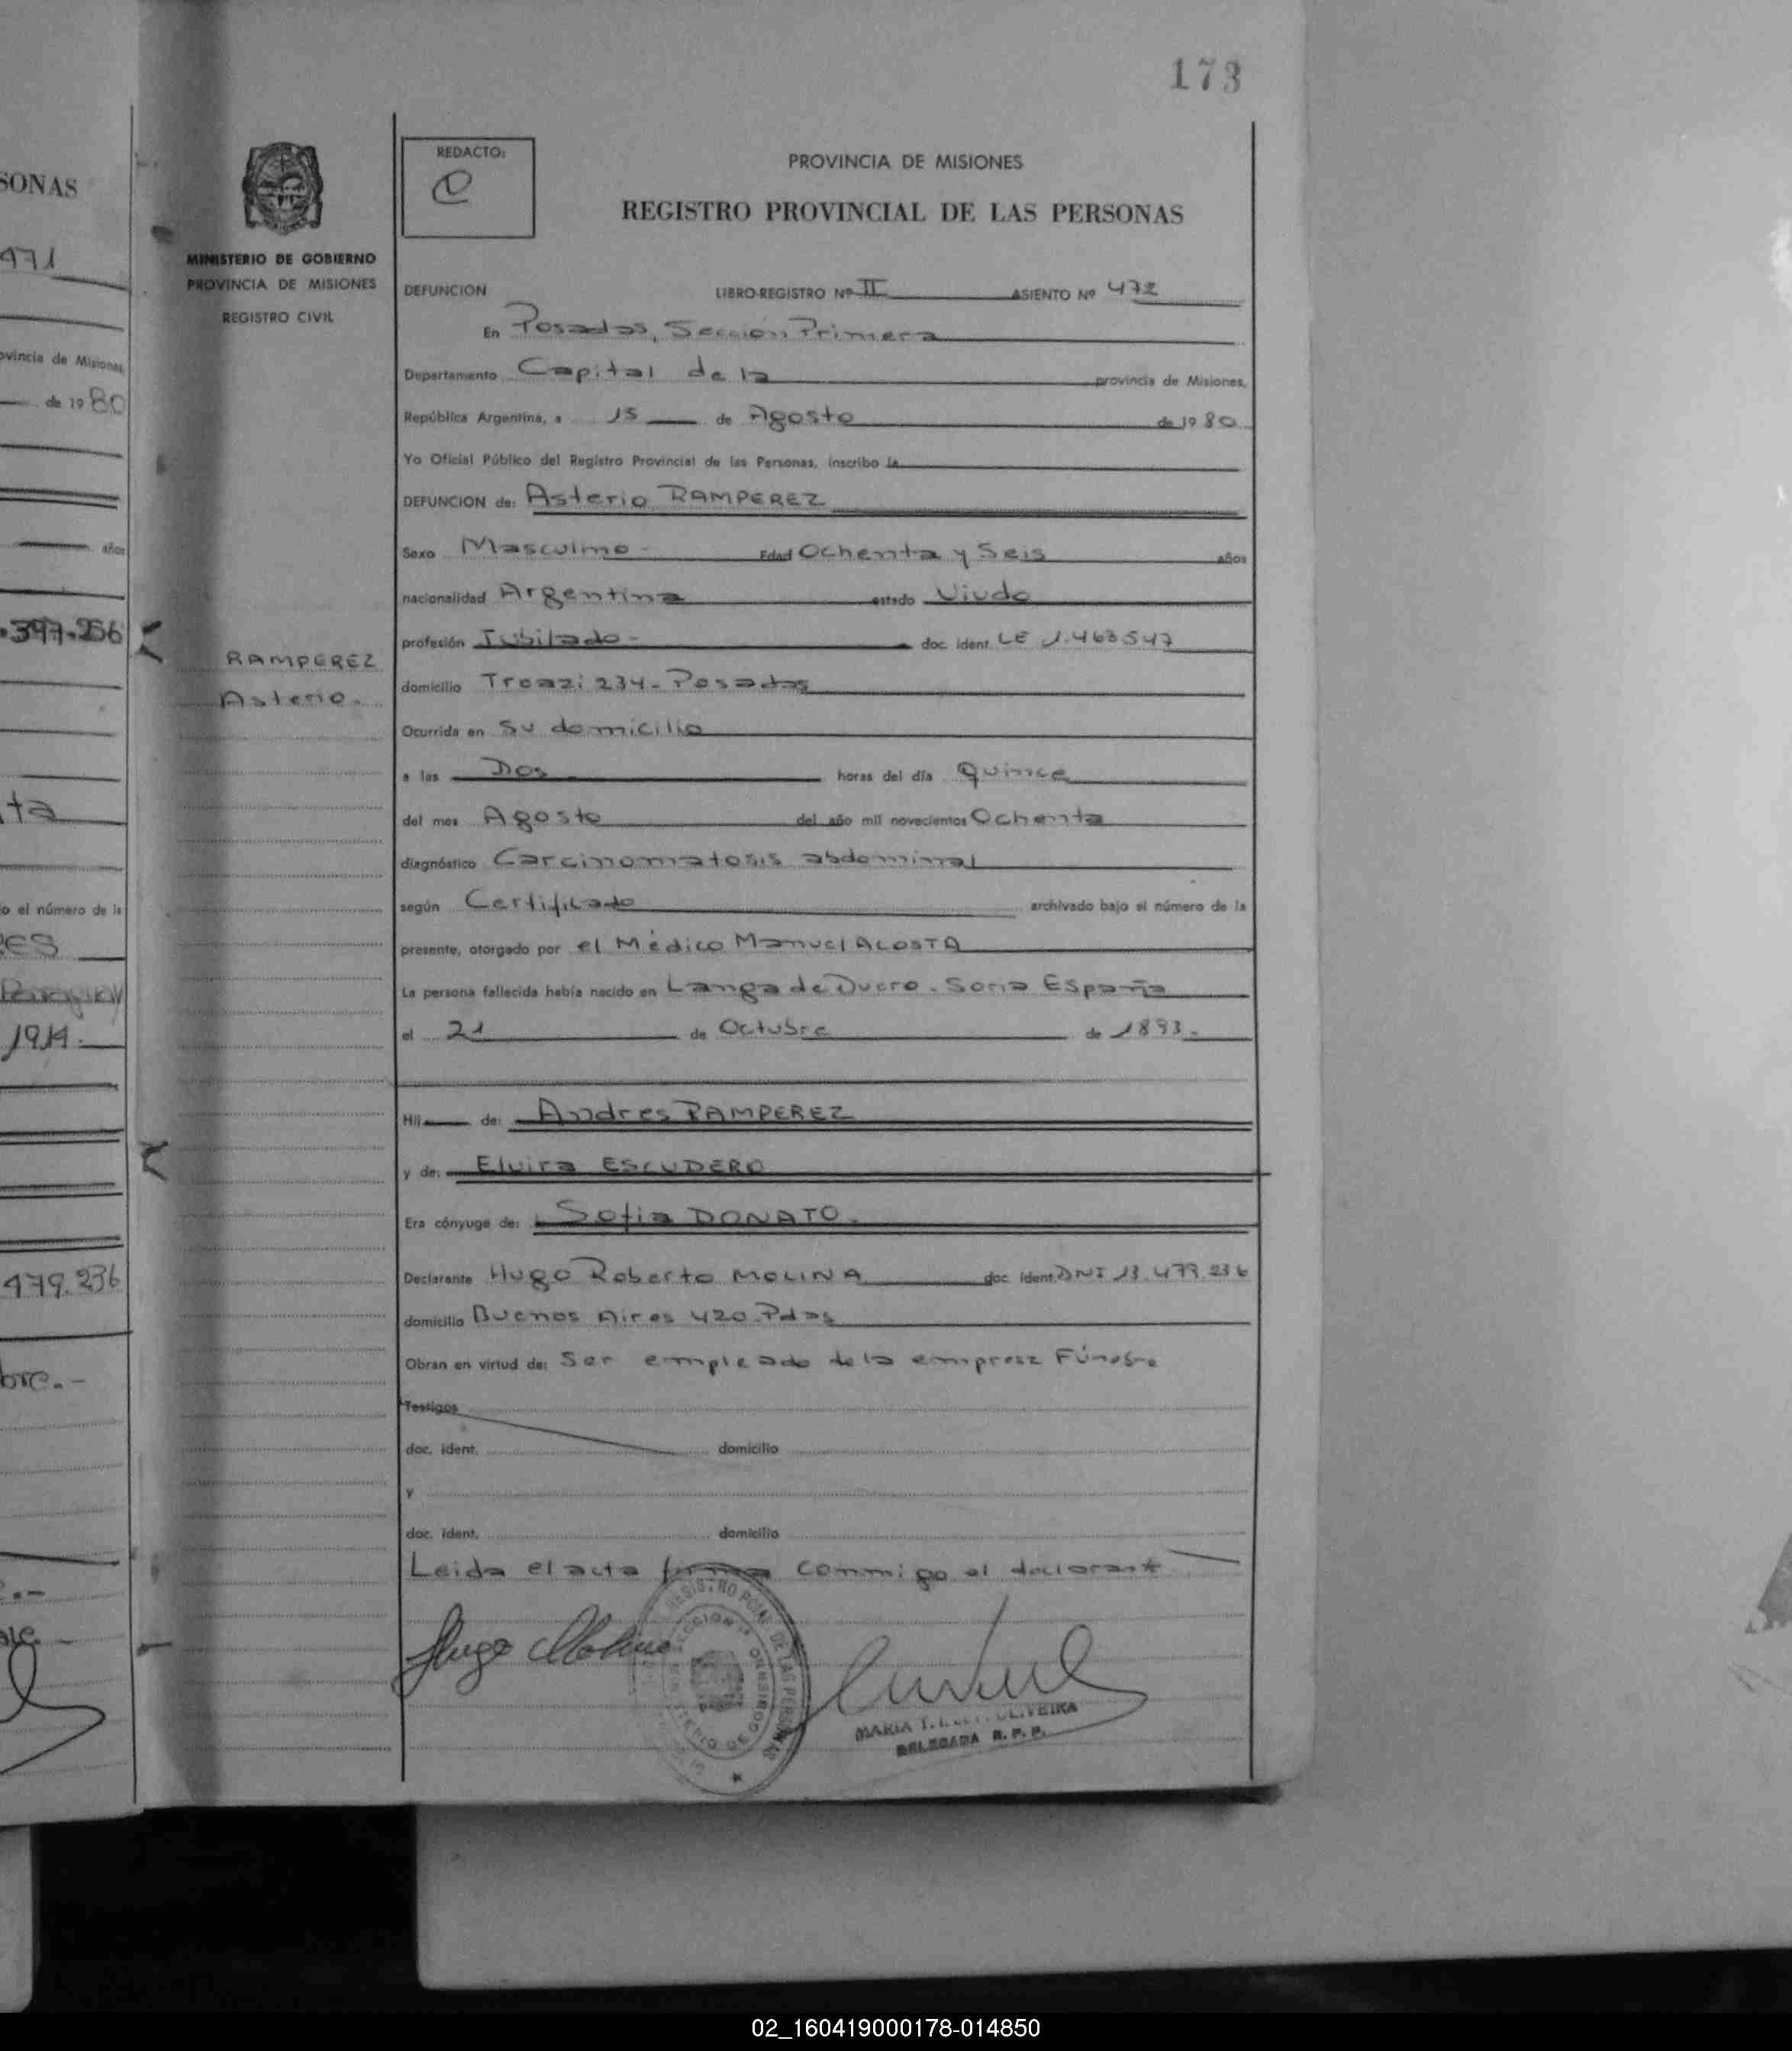 173
SONAS
471
ovincia de Misiones,
de 1980
años
.397.256
ta
o el número de la
RES
Paraguay
1914.
479.236
bre.-
MINISTERIO DE GOBIERNO
PROVINCIA DE MISIONES
REGISTRO CIVIL
RAMPEREZ
Asterio.
REDACTO:
PROVINCIA DE MISIONES
REGISTRO PROVINCIAL DE LAS PERSONAS
DEFUNCION LIBRO-REGISTRO Nº II ASIENTO Nº 472
En Posadas, Sección Primera
Departamento Capital de la provincia de Misiones,
República Argentina, a 15 de Agosto de 1980
Yo Oficial Público del Registro Provincial de las Personas, inscribo la
DEFUNCION de: Asterio RAMPEREZ
Sexo Masculino - Edad Ochenta y Seis años
nacionalidad Argentina estado Viudo
profesión Jubilado - doc. ident. LE 1.463.547
domicilio 234 - Posadas
Ocurrida en Su domicilio
a las Dos horas del día Quince
del mes Agosto del año mil novecientos Ochenta
diagnóstico Carcinomatosis abdominal
según Certificado archivado bajo el número de la
presente, otorgado por el Médico Manuel ACOSTA
La persona fallecida había nacido en Langa de Duero - Soria España
el 21 de Octubre de 1893 -
Hij de: Andres RAMPEREZ
y de: Elvira ESCUDERO
Era cónyuge de: Sofia DONATO.
Declarante Hugo Roberto MOLINA doc. ident. DNI 13.479.236
domicilio Buenos Aires 420. Pdas
Obran en virtud de: Ser empleado de la empresa Fúnebre
Testigos
doc. ident. domicilio
y
doc. ident. domicilio
Leida el acta firma conmigo el declarant
Hugo Molina
REGISTRO PCIAL DE LAS PERSONAS
SECCION 1ª
MINISTERIO DE GOBIERNO
MARIA T. OLIVEIRA
DELEGADA R. P. P.
02_160419000178-014850